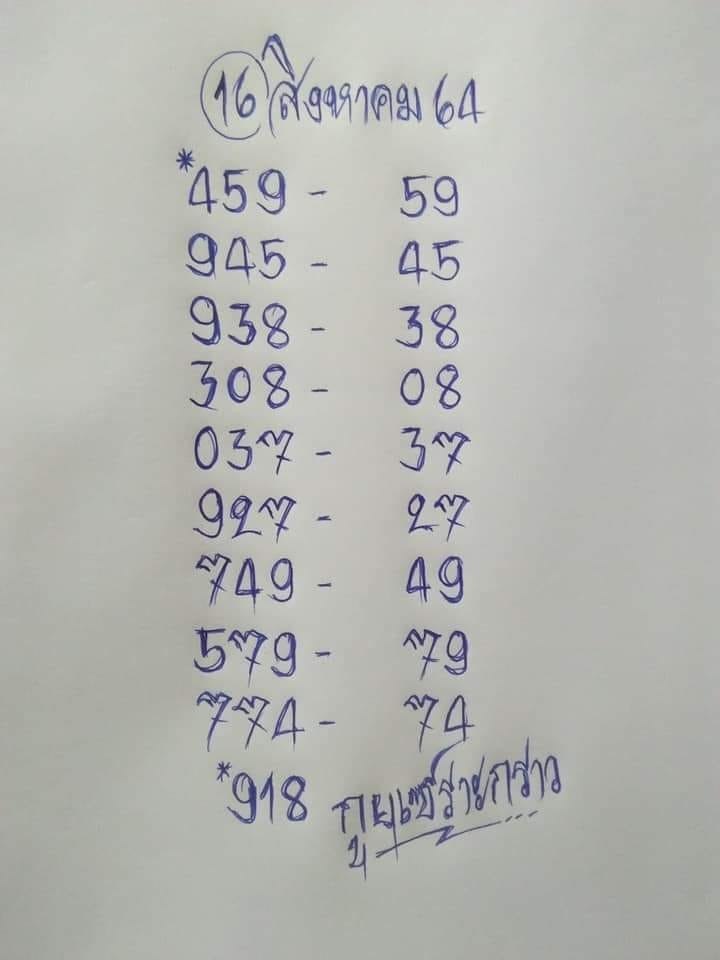 16 สิงหาคม 64
*459 - 59
945 - 45
938 - 38
308 - 08
037 - 37
927 - 27
749 - 49
579 - 79
774 - 74
*918